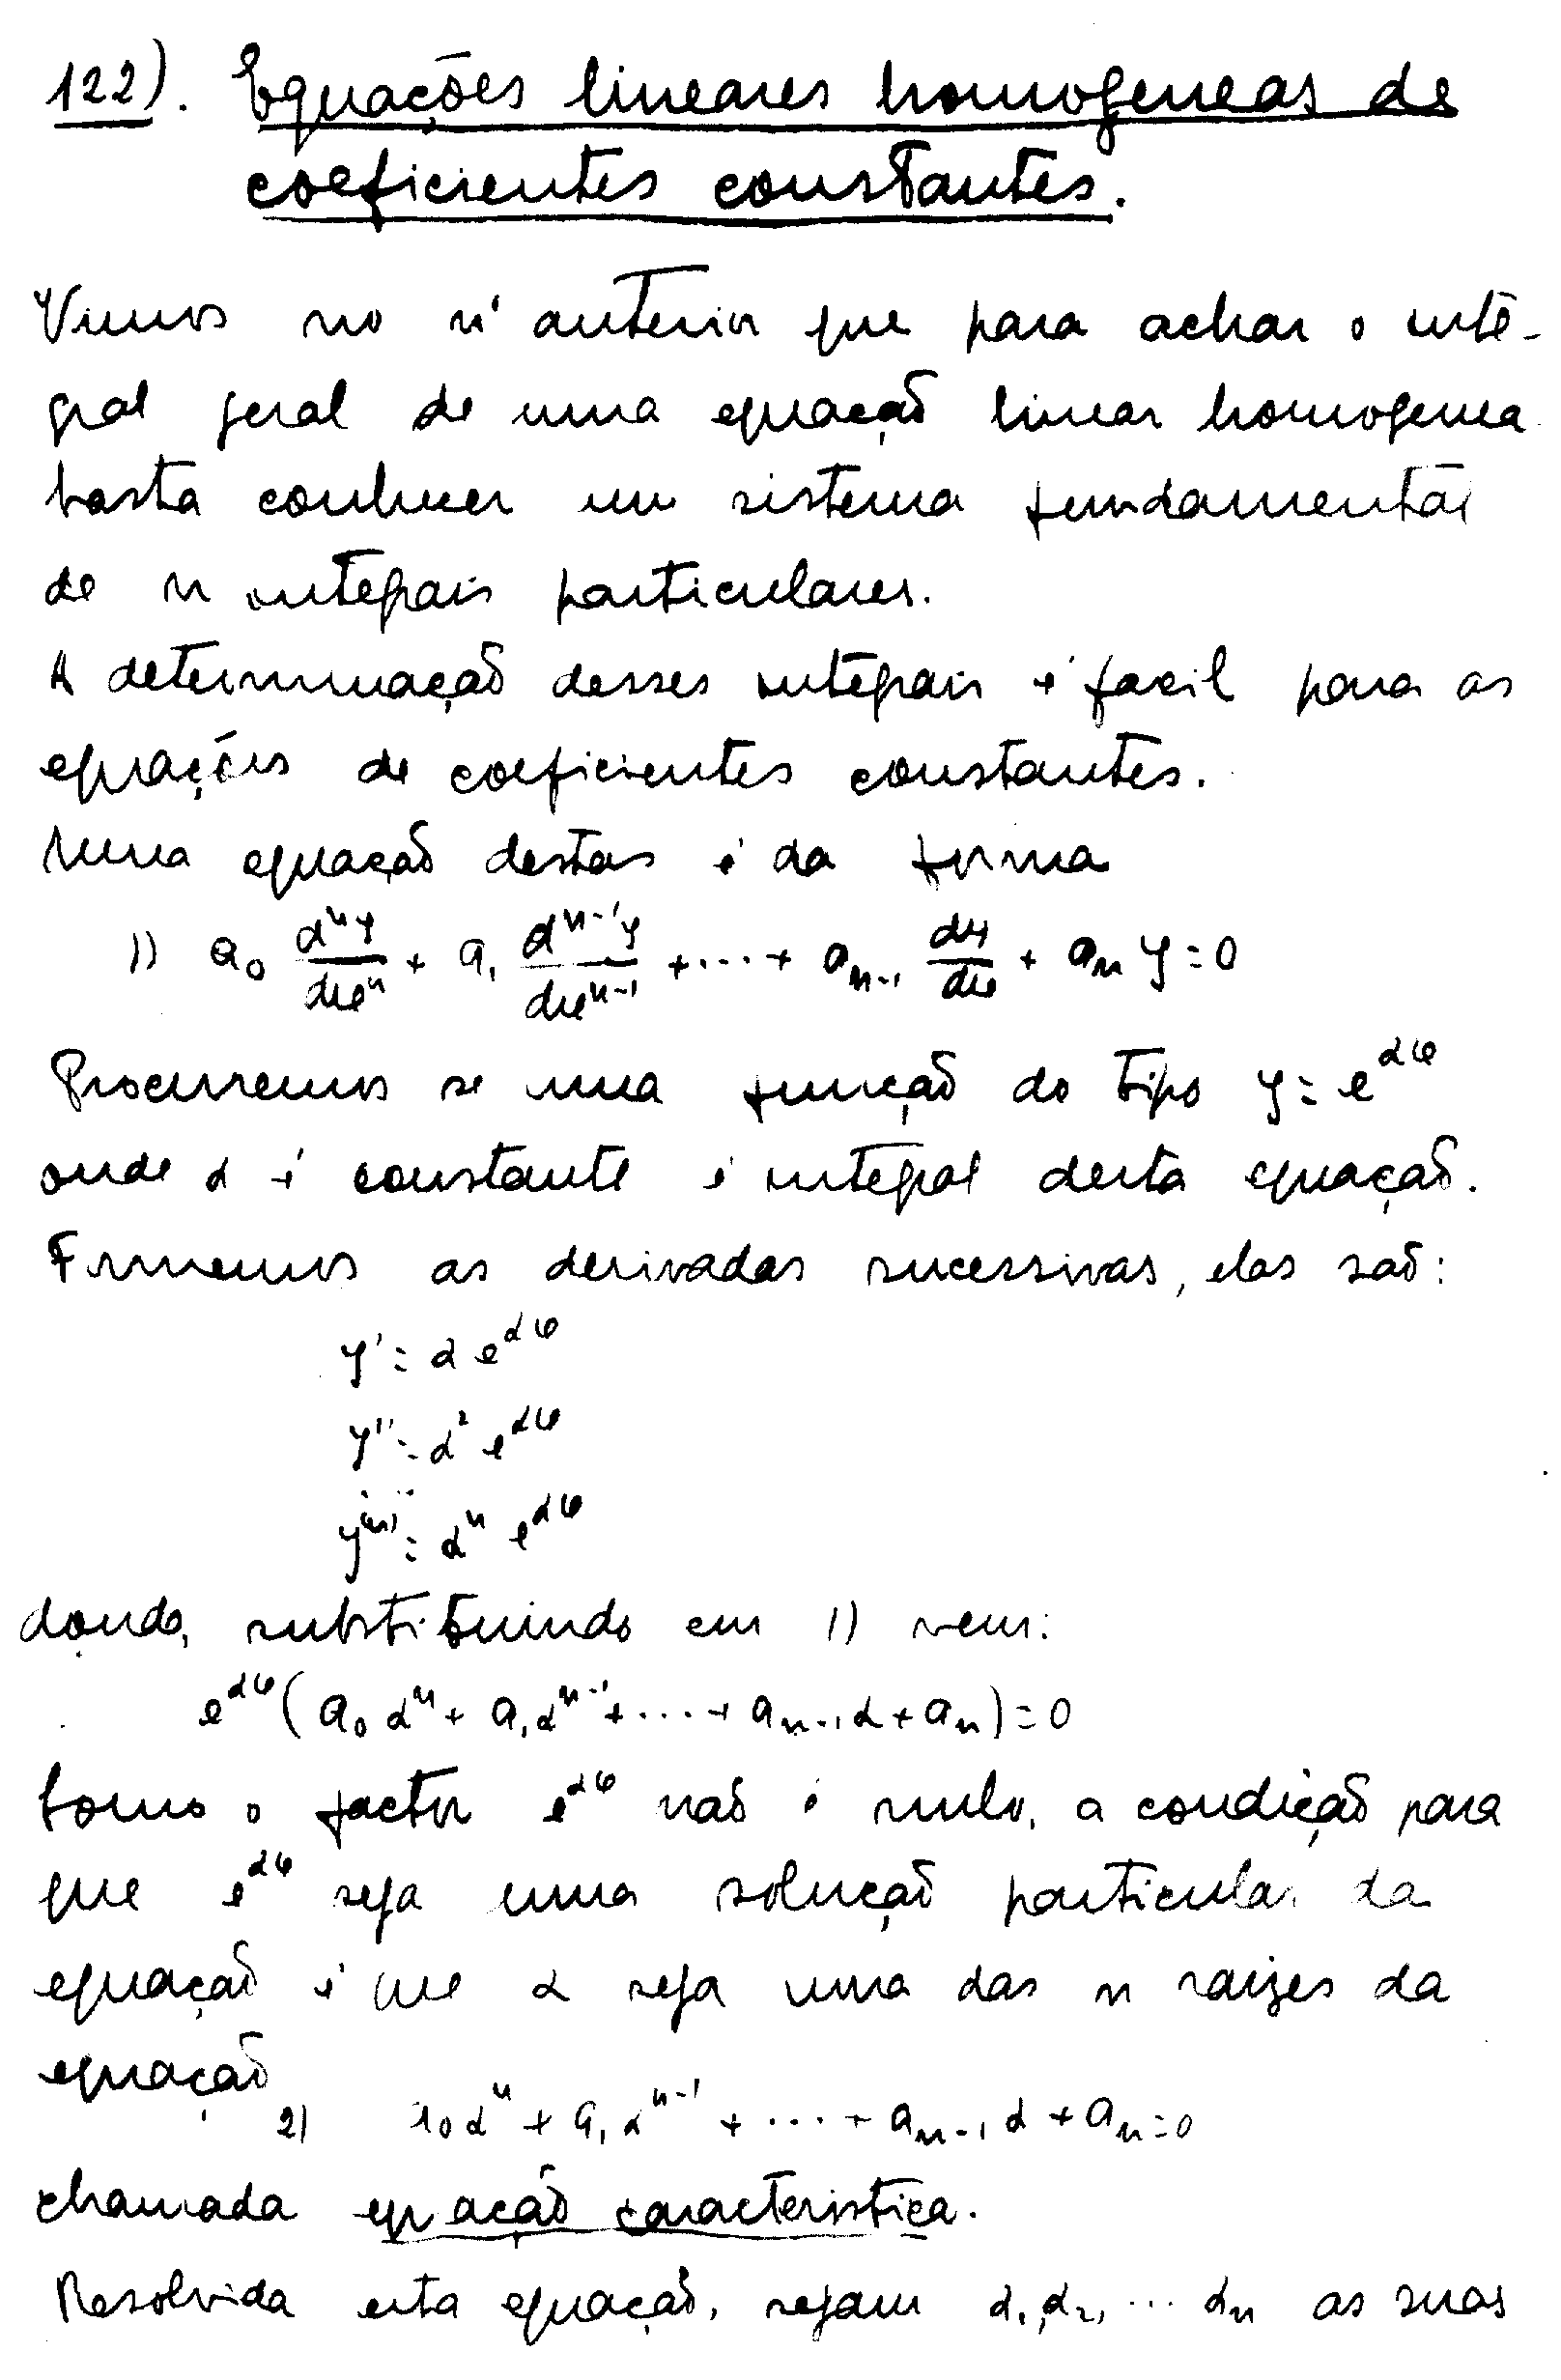 122). Equações lineares homogeneas de
coeficientes constantes.
Vimos no nº anterior que para achar o inte-
gral geral de uma equação linear homogenea
basta conhecer um sistema fundamental
de n integrais particulares.
A determinação desses integrais é facil para as
equações de coeficientes constantes.
Uma equação destas é da forma
1) a₀ dⁿy/dxⁿ + a₁ dⁿ⁻¹y/dxⁿ⁻¹ + ... + aₙ₋₁ dy/dx + aₙ y = 0
Procuremos se uma função do tipo y = e^αx
onde α é constante é integral desta equação.
Formemos as derivadas sucessivas, elas são:
y' = α e^αx
y'' = α² e^αx
....
y⁽ⁿ⁾ = αⁿ e^αx
donde, substituindo em 1) vem:
e^αx (a₀ αⁿ + a₁ αⁿ⁻¹ + ... + aₙ₋₁ α + aₙ) = 0
Como o factor e^αx não é nulo, a condição para
que e^αx seja uma solução particular da
equação é que α seja uma das n raizes da
equação
2) a₀ αⁿ + a₁ αⁿ⁻¹ + ... + aₙ₋₁ α + aₙ = 0
chamada equação caracteristica.
Resolvida esta equação, sejam α₁, α₂, ... αₙ as suas